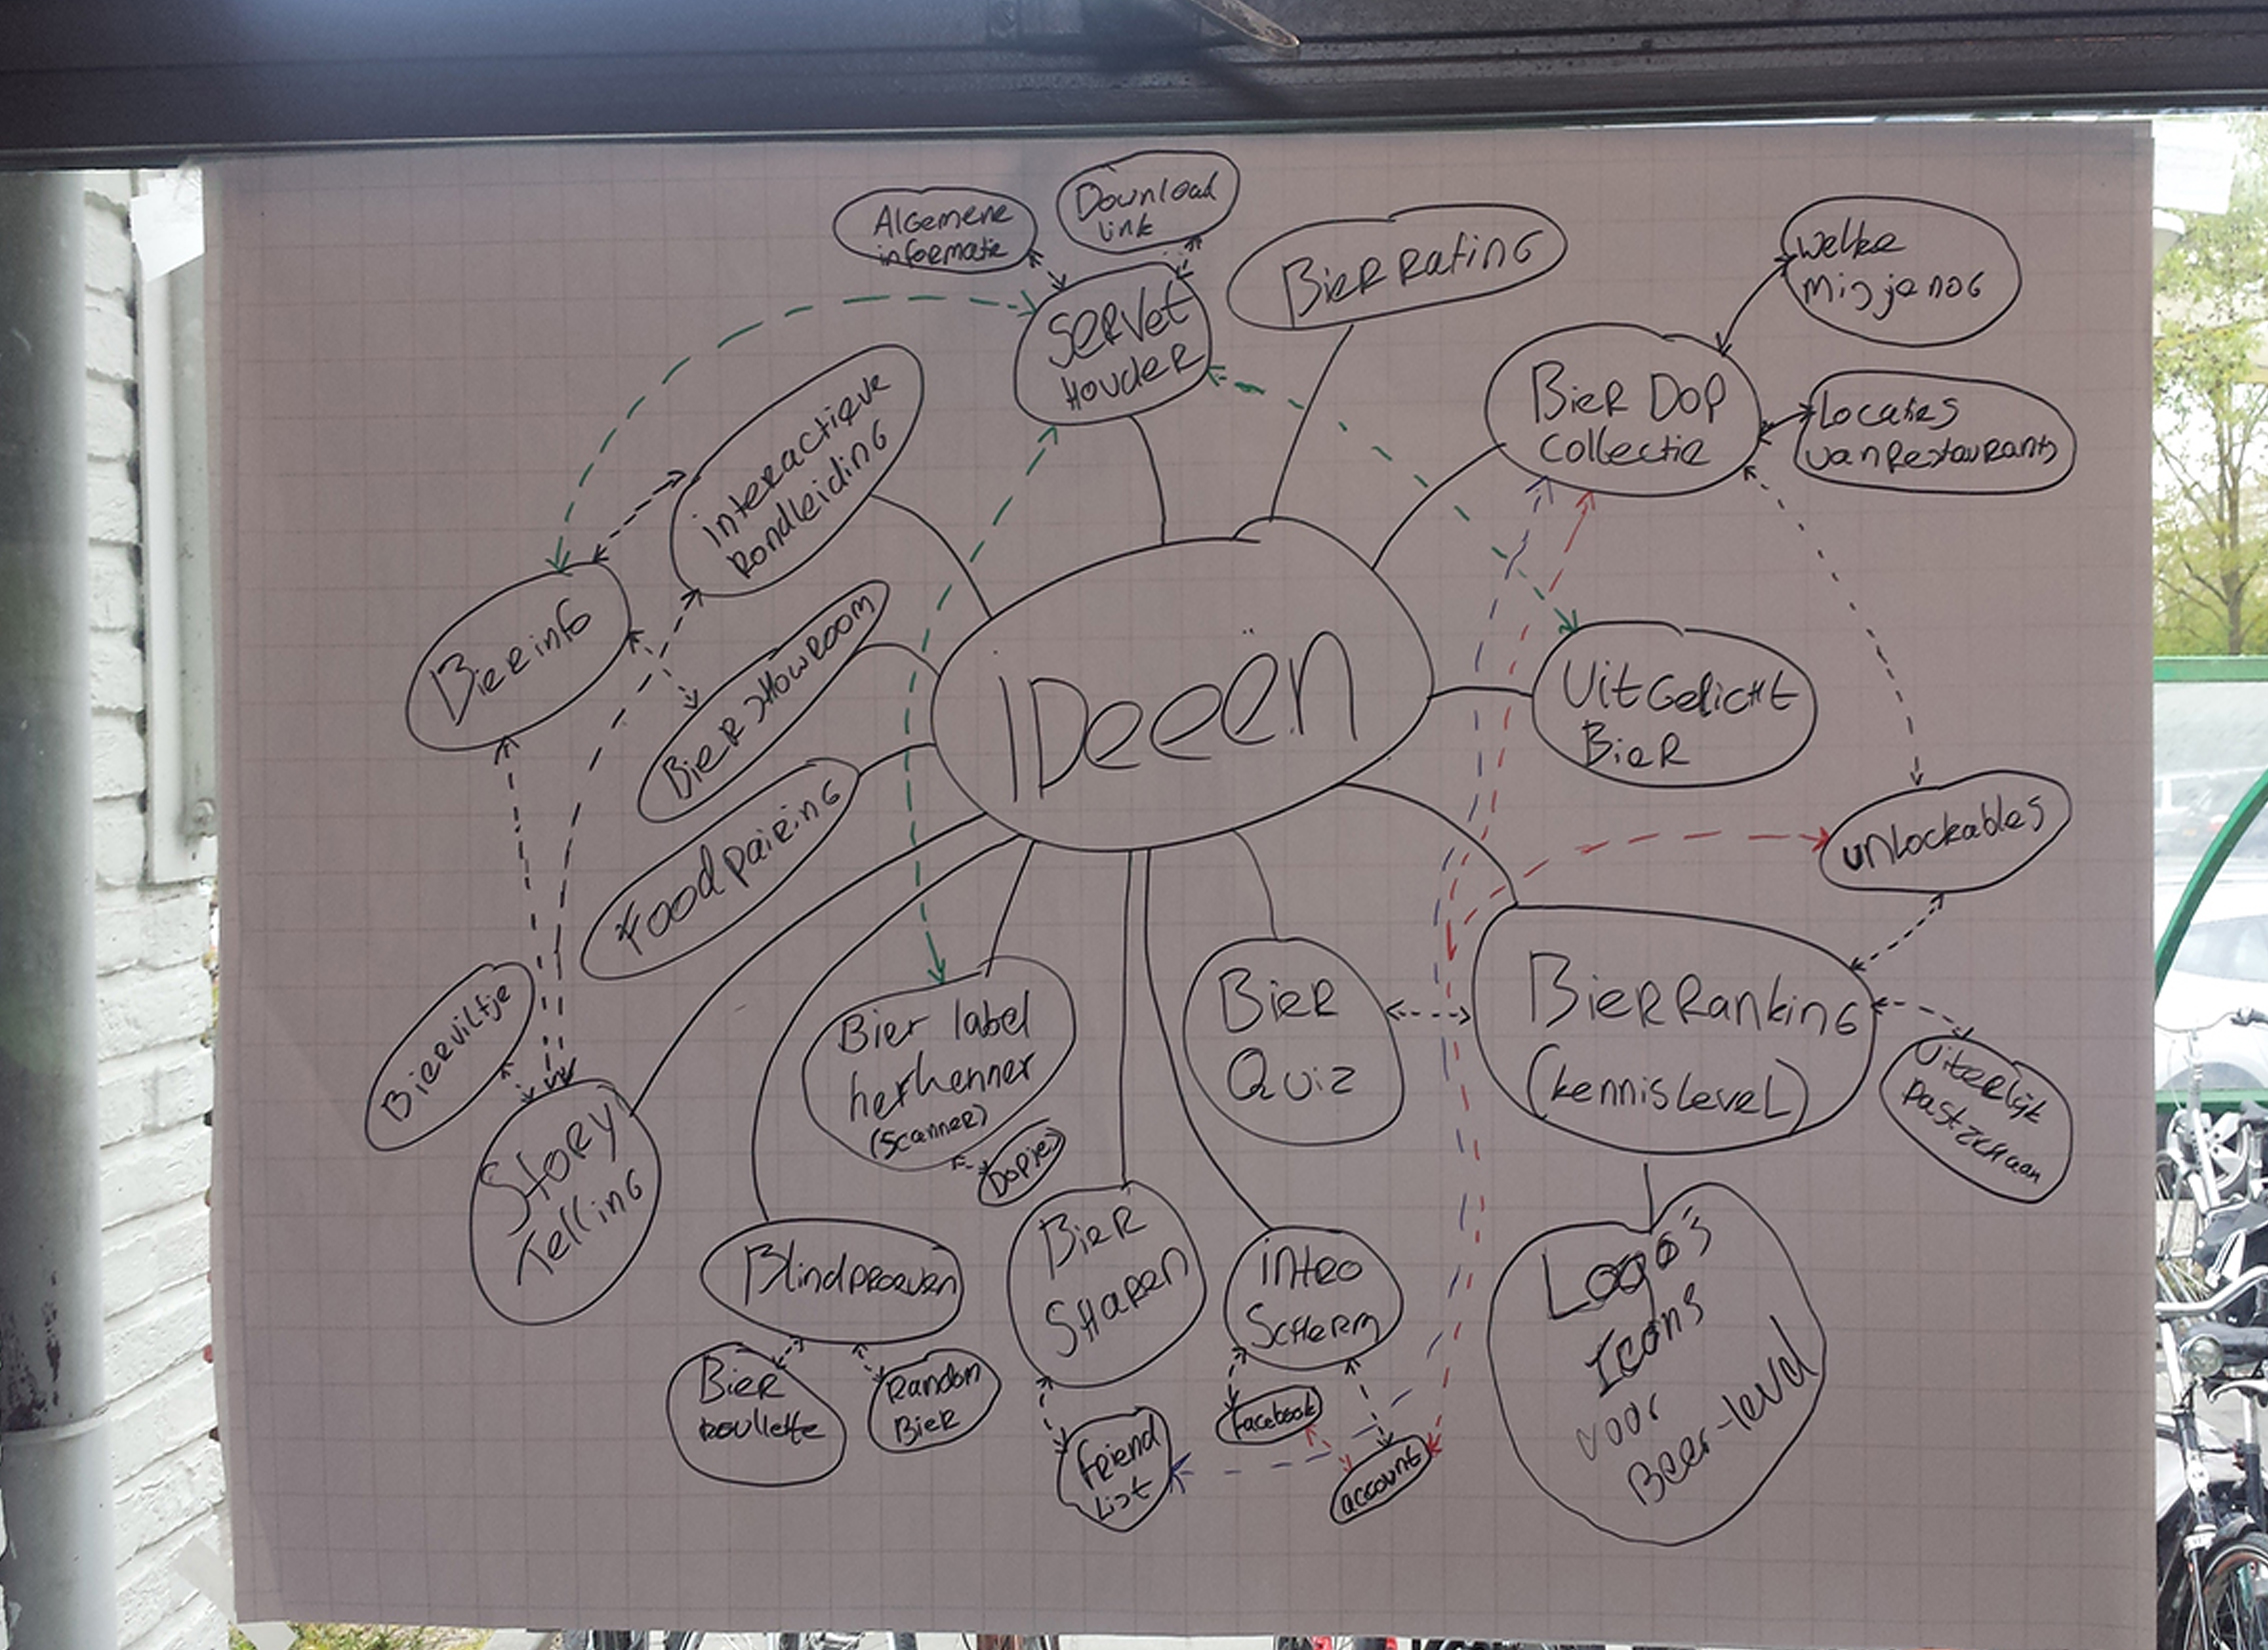 Algemene
informatie
Download
link
Servet
Houder
Bier Rating
Welke
Mis je nog
Bier Dop
Collectie
Locaties
van Restaurants
interactieve
Rondleiding
Bier info
Bier showroom
Foodpairing
IDeeën
Uitgelicht
Bier
Unlockables
Bierviltje
Story
Telling
Bier label
herkenner
(Scanner)
Dopjes
Bier
Quiz
Bier Ranking
(kennislevel)
Uiterlijk
past zich aan
Blindproeven
Bier
roullette
Random
Bier
Bier
Sharen
Friend
List
intro
Scherm
Facebook
account
Logo's
Icons
voor
Beer-level